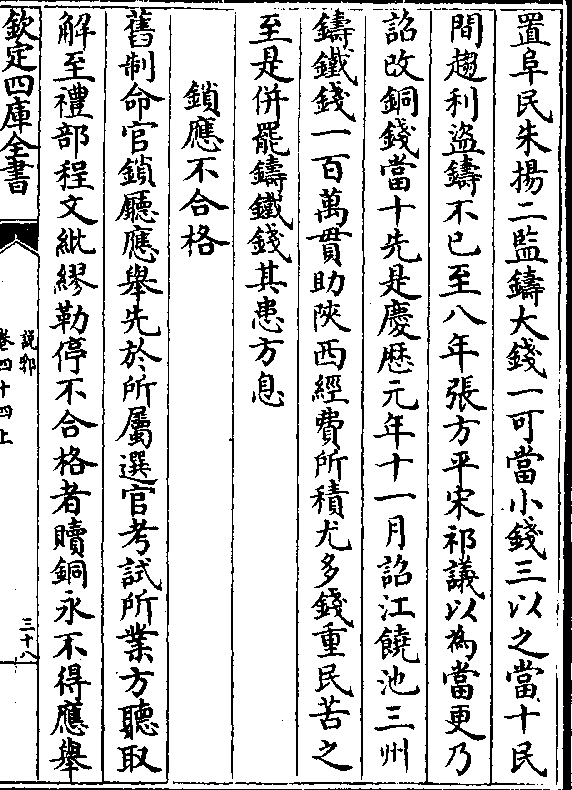 置阜民朱揚二監鑄大錢一可當小錢三以之當十民
間趨利盜鑄不已至八年張方平宋祁議以為當更乃
詔改銅錢當十先是慶歴元年十一月詔江饒池三州
鑄鐵錢一百萬貫助陜西經費所積尤多錢重民苦之
至是併罷鑄鐵錢其患方息
鎖應不合格
舊制命官鎖廳應舉先於所屬選官考試所業方聽取
解至禮部程文紕繆勒停不合格者贖銅永不得應舉
欽定四庫全書
說郛
卷四十四上
三十八